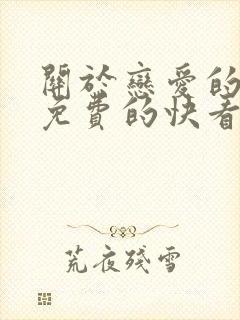 關於戀愛的
免費的快看
荒夜殘雪